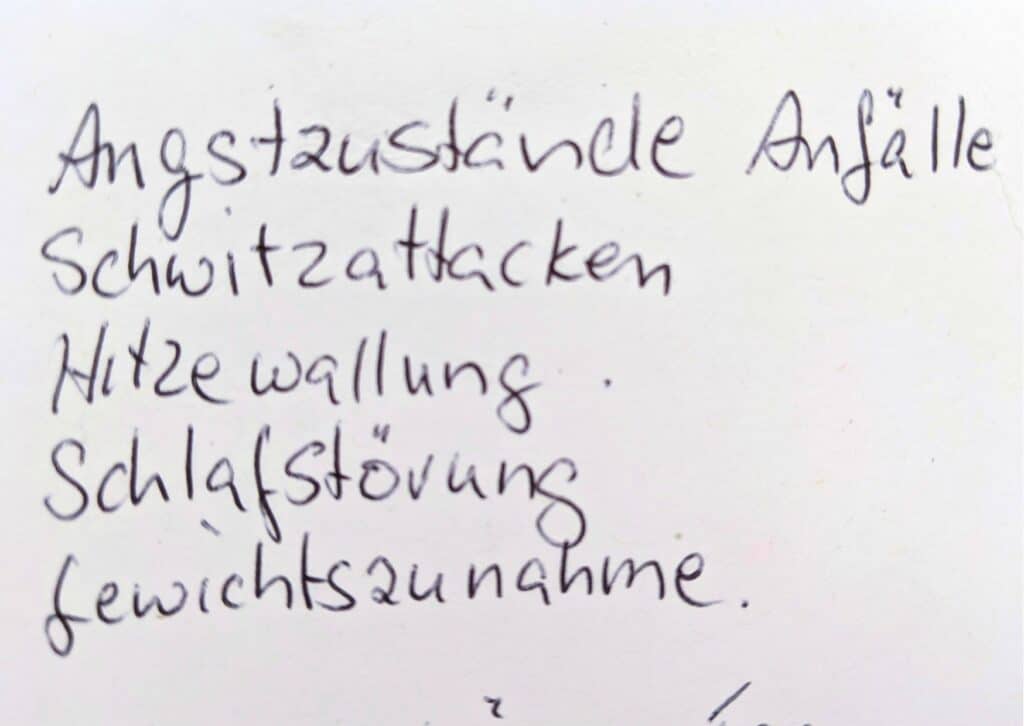 Angstzustände Anfälle
Schwitzattacken
Hitzewallung.
Schlafstörung
Gewichtszunahme.